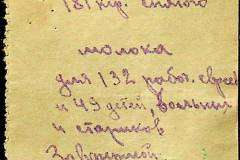 181 кгр. снятого
молока
для 132 работ. евреев
и 49 детей, больных
и стариков